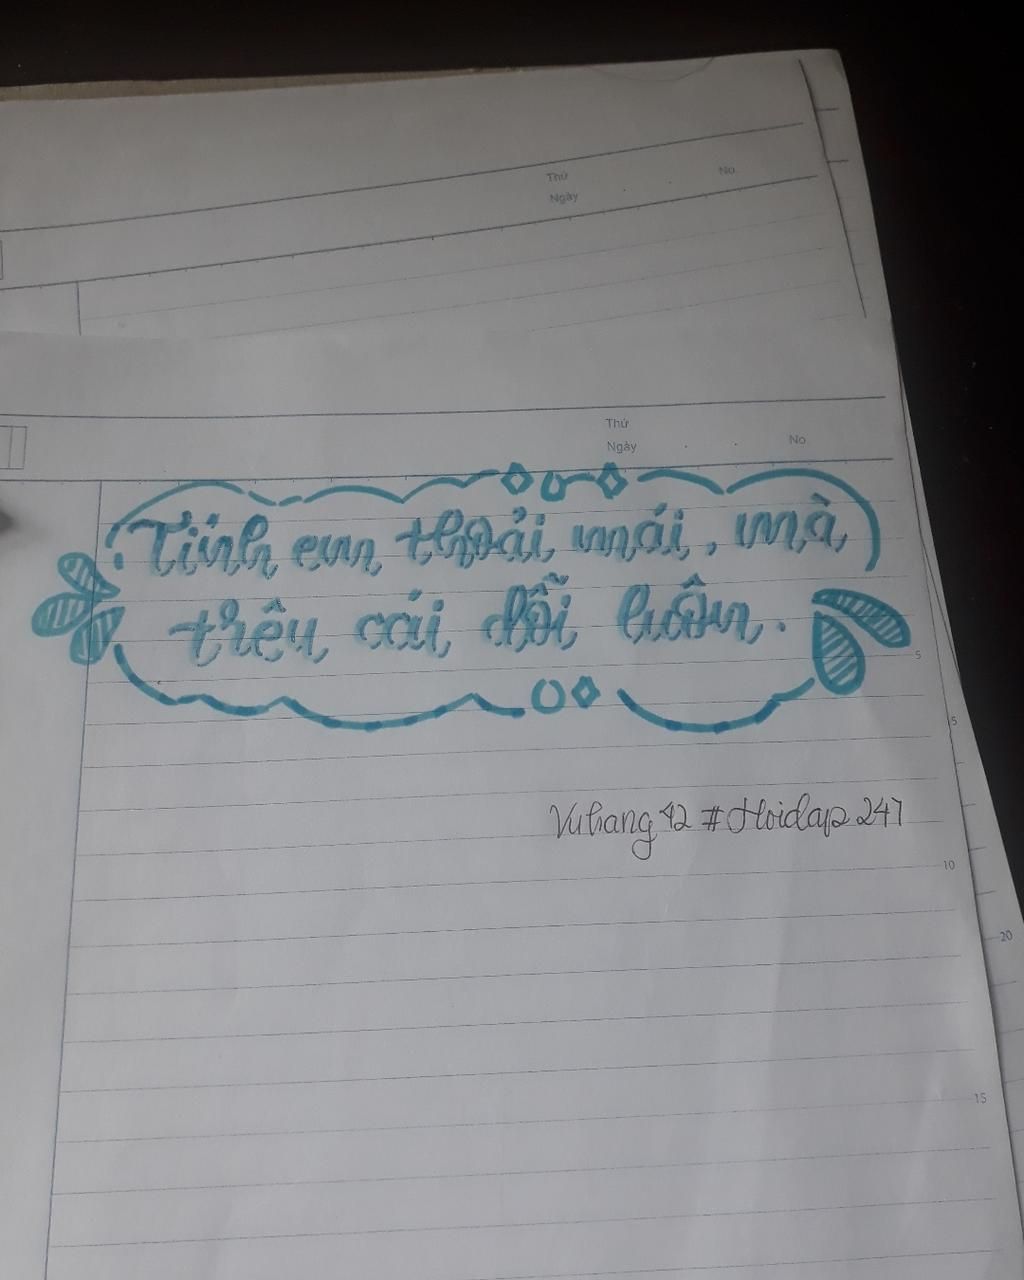 Thứ
Ngày . . No.
Thứ
Ngày . . No
Tính em thoải mái, mà
trêu cái dỗi luôn.
5
5
Vuhang42 #Hoidap247
10
20
15